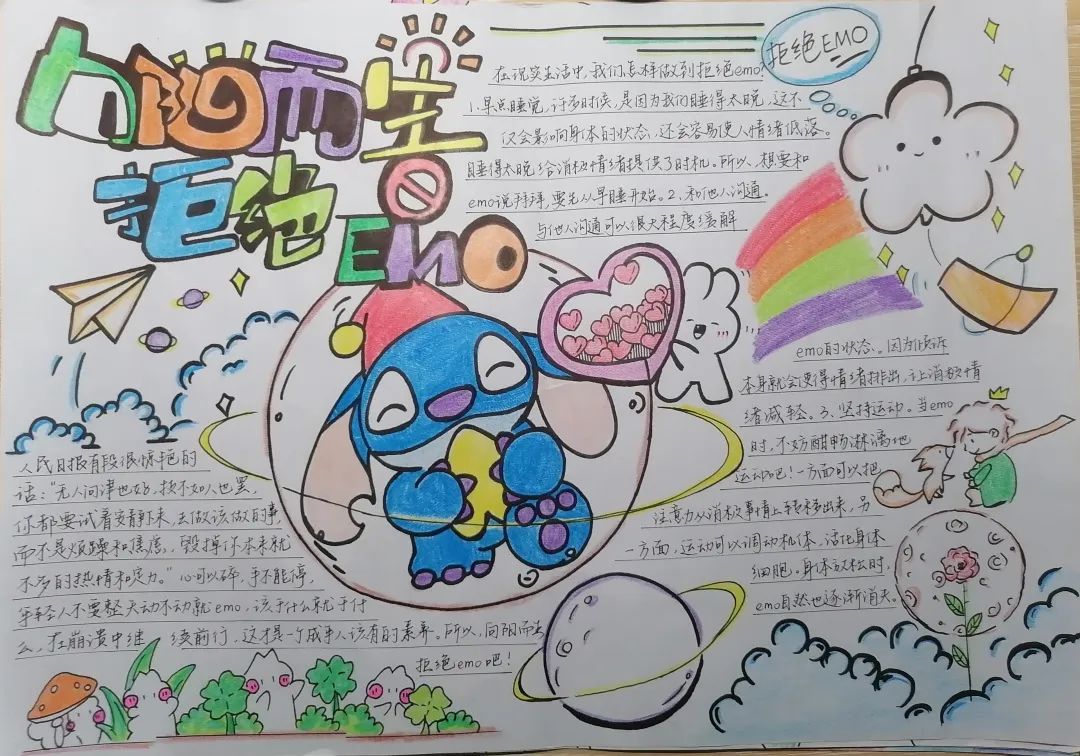 向阳而生
拒绝
EMO
拒绝EMO
在现实生活中,我们怎样做到拒绝emo?
1.早点睡觉,许多时候,是因为我们睡得太晚,这不
仅会影响身体的状态,还会容易使人情绪低落。
睡得太晚给消极情绪提供了时机。所以,想要和
emo说拜拜,要先从早睡开始。2、和他人沟通。
与他人沟通可以很大程度缓解
emo的状态。因为倾诉
本身就会使得情绪排出,让消极情
绪减轻。3、坚持运动。当emo
时,不妨酣畅淋漓地
运动吧!一方面可以把
注意力从消极事情上转移出来,另
一方面,运动可以调动机体,活化身体
细胞。身体放松时,
emo自然也逐渐消失。
人民日报有段很惊艳的
话:"无人问津也好,技不如人也罢,
你都要试着安静下来,去做该做的事,
而不是烦躁和焦虑,毁掉你本来就
不多的热情和定力。"心可以碎,手不能停,
年轻人不要整天动不动就emo,该干什么就干什
么,在崩溃中继续前行,这才是一个成年人该有的素养。所以,向阳而
拒绝emo吧!